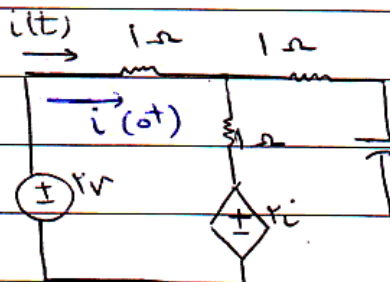 i(t)
1 Ω 1 Ω
i (0+)
1 Ω
± ۲v
± ۲i